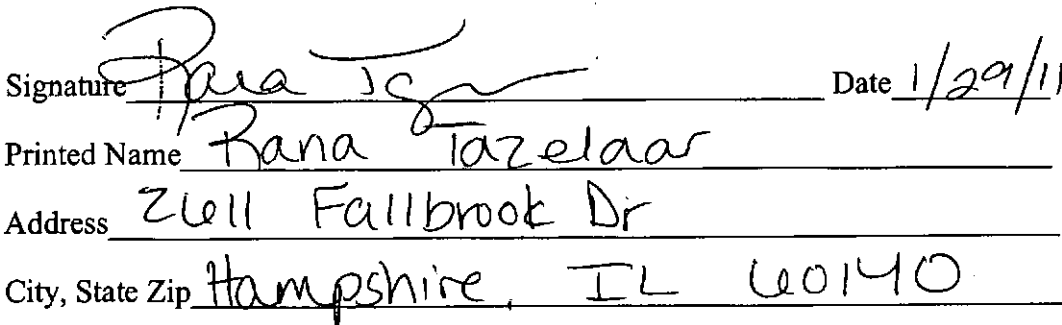 Signature Rana Date 1/29/11
Printed Name Rana Tazelaar
Address 2611 Fallbrook Dr
City, State Zip Hampshire, IL 60140